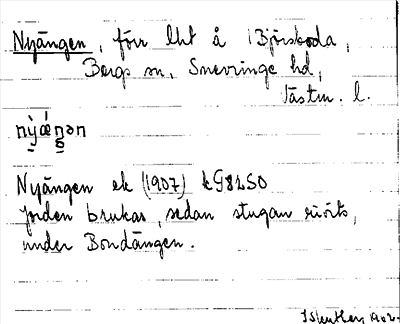 Nyängen, förr lht å Björskoda,
Bergs sn, Snevringe hd,
Västm. l.
nỳǽŋən
Nyängen ek (1907) kG8LSO
jorden brukas, sedan stugan rivits,
under Bondängen.